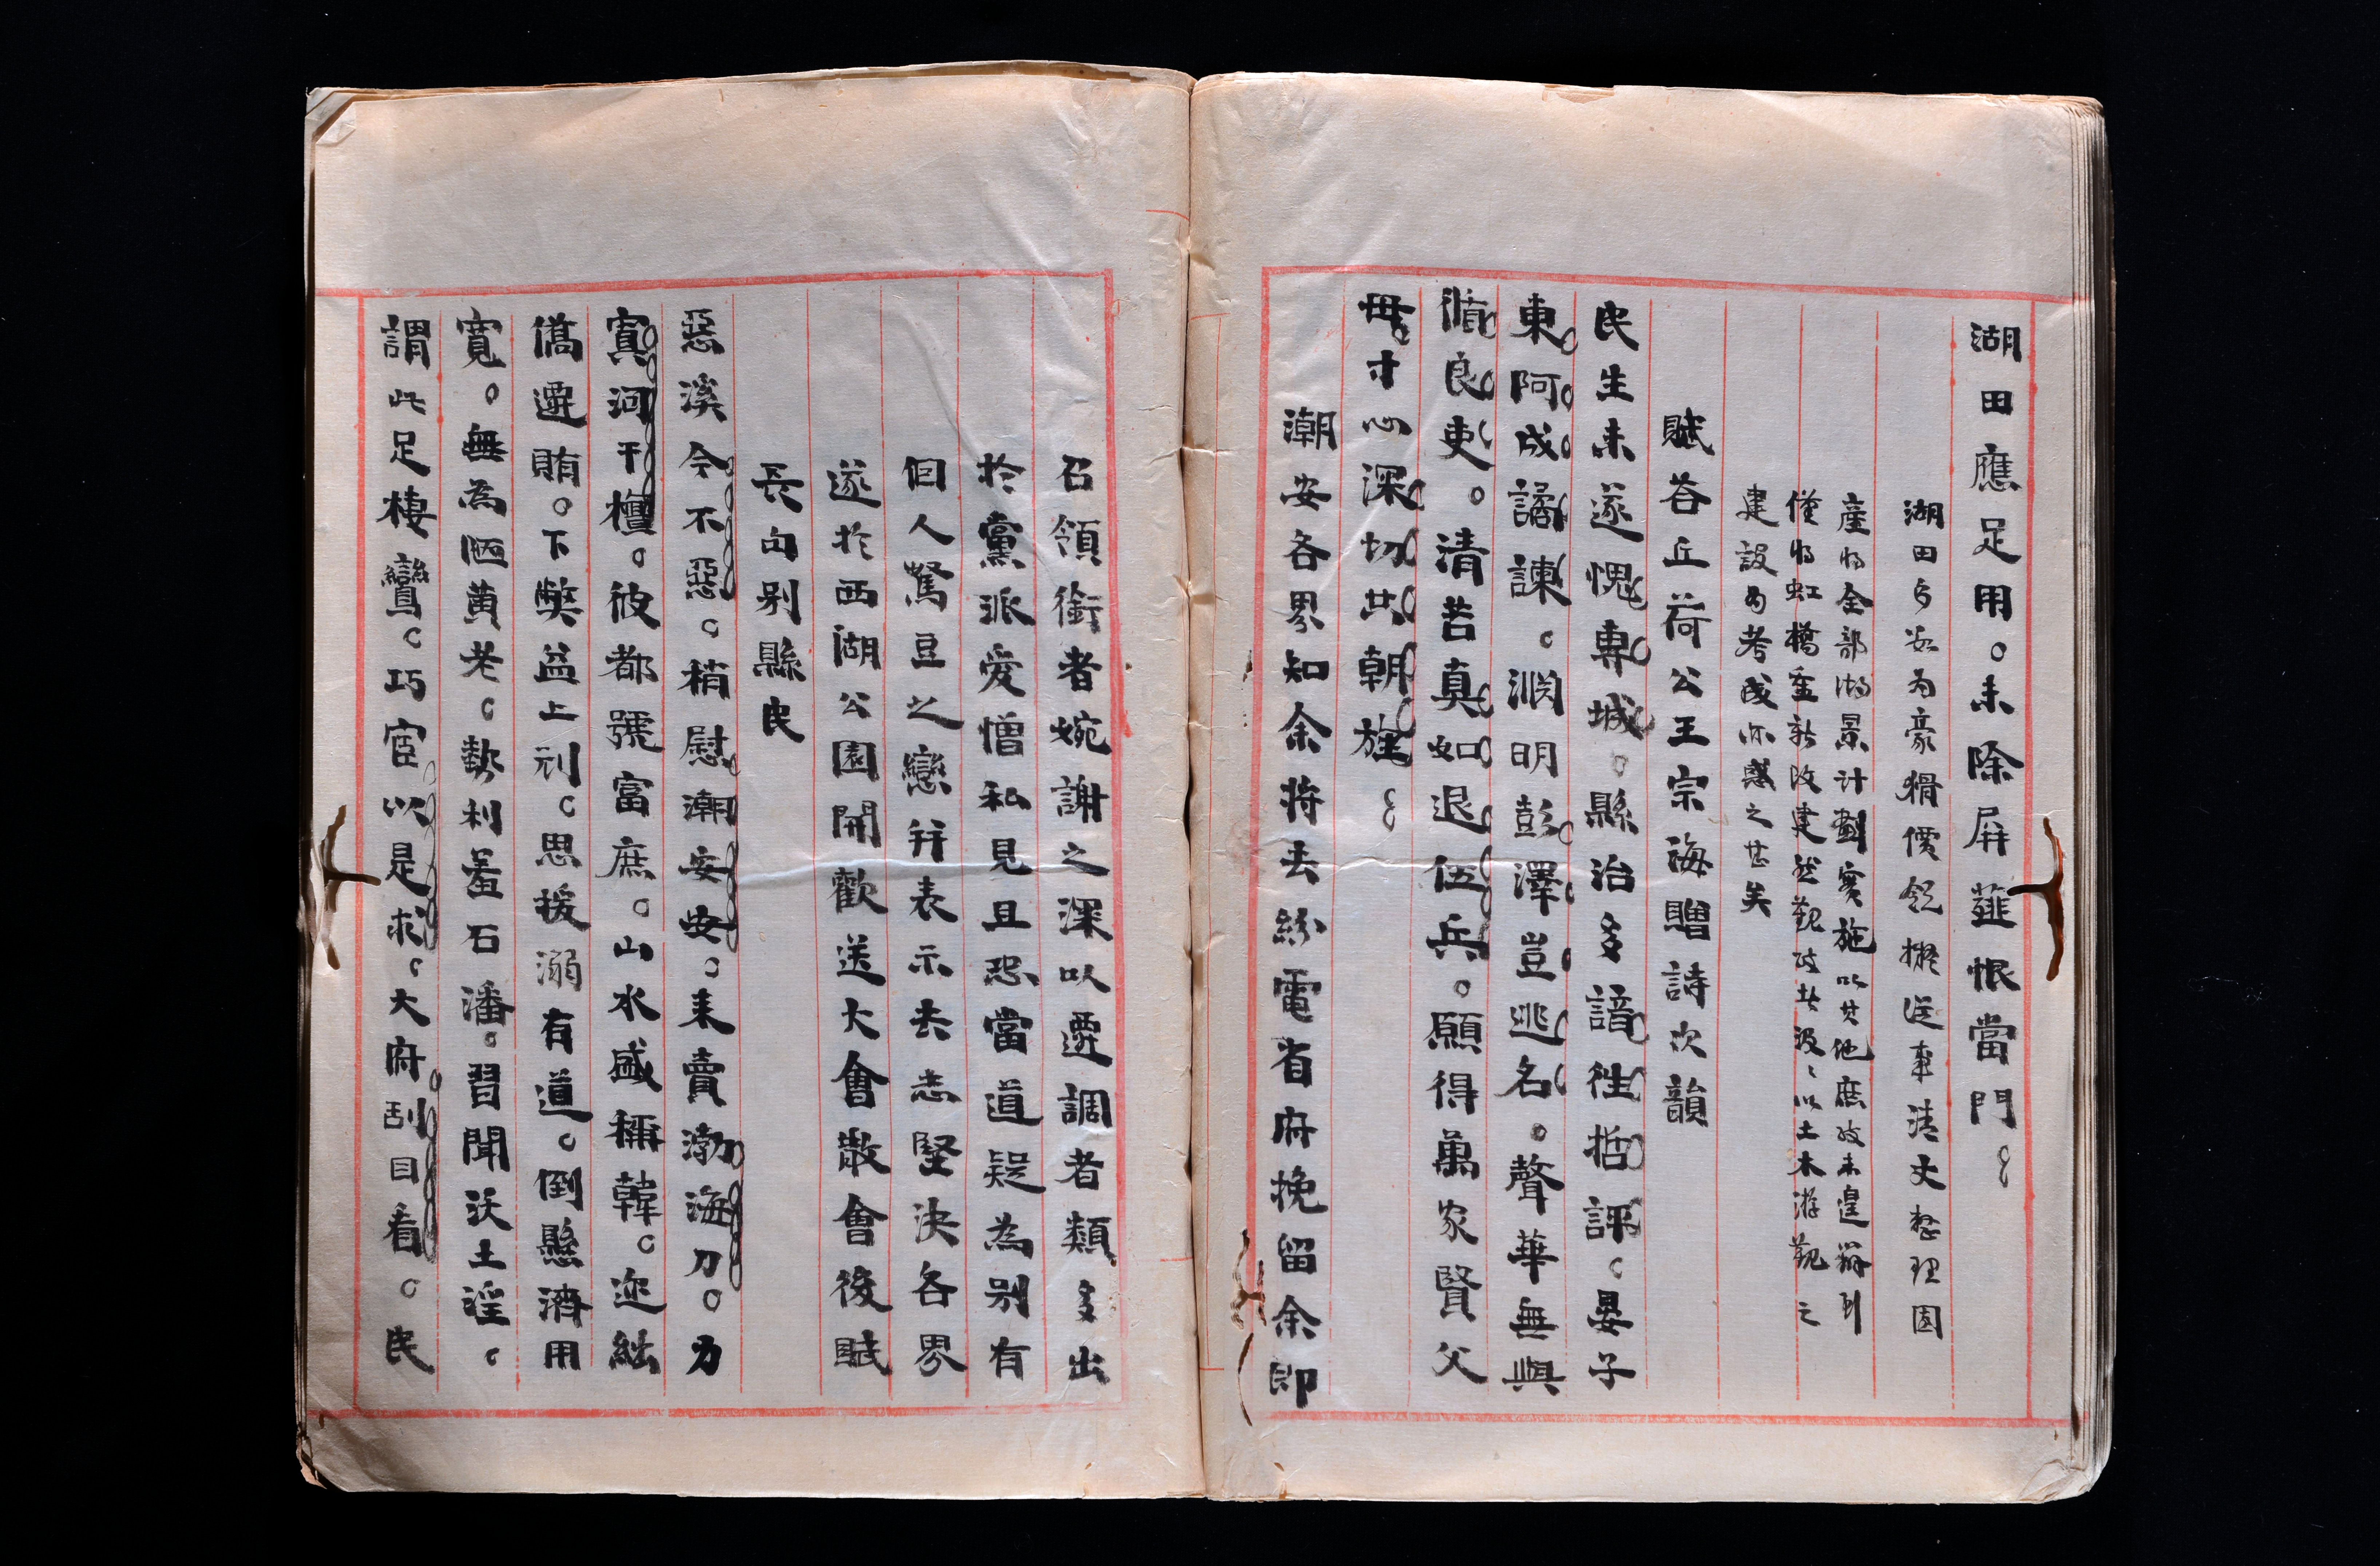 湖田應足用。未除屏薤恨當門。
湖田多數為豪猾價領擬從事清丈整理因
產將全部湖景计劃實施以其他庶政未遑辦到
僅將虹橋重新改建然觀此其汲汲以土木游觀之
建設為考成亦惑之甚矣
賦荅丘荷公王宗海贈詩次韻
民生未遂愧專城。縣治多諳徃哲評。晏子
東阿成譎諫。淵明彭澤豈逃名。聲華無與
循良吏。清苦真如退伍兵。願得萬家賢父
母。寸心深切共朝旌。
潮安各界知余將去紛電省府挽留余即
召領銜者婉謝之深以遷調者類多出
於黨派愛憎私見且恐當道疑為别有
佀人駑豆之戀并表示去志堅決各界
遂於西湖公園開歡送大會散會後賦
長句别縣民
惡溪今不惡。稍慰潮安安。未賣渤海刀。力
寘河干檀。彼都號富庶。山水盛稱韓。迩絀
僑遷賄。下獘益上刓。思援溺有道。倒懸濟用
寬。無為陋黄老。勢利羞石潘。習聞沃土淫。
謂此足棲鸞。巧宦以是求。大府刮目看。民